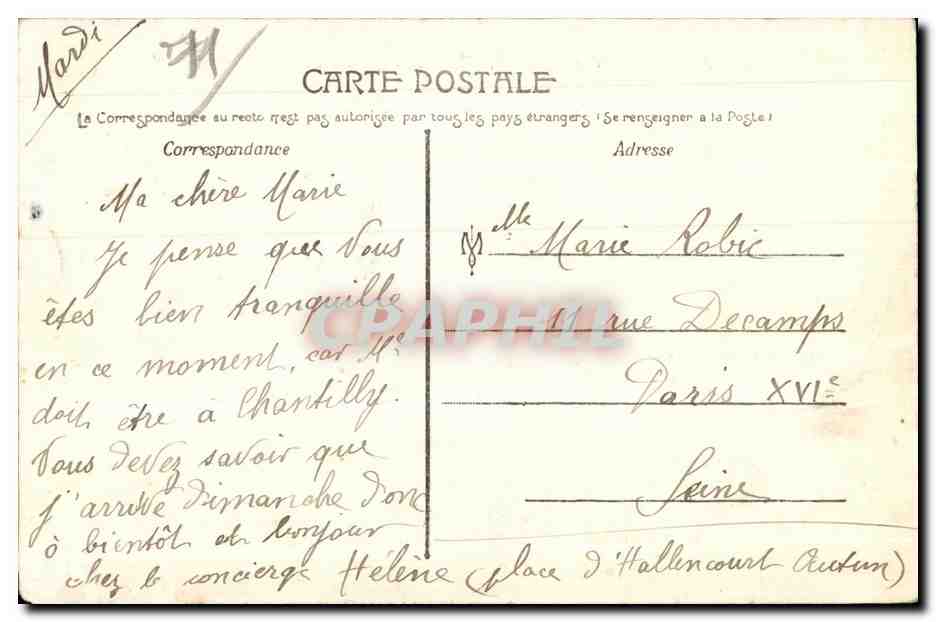 Mardi
CARTE POSTALE
La Correspondance au recto n'est pas autorisée par tous les pays étrangers (Se renseigner à la Poste)
Correspondance
Ma chère Marie
Je pense que vous
êtes bien tranquille
en ce moment, car Me
doit être à Chantilly.
Vous devez savoir que
j'arrive Dimanche donc
à bientôt et bonjour
chez le concierge Hélène (place d'Hallencourt Autun)
Adresse
Mlle Marie Robic
11 rue Decamps
Paris XVIe
Seine
CPAPHIL